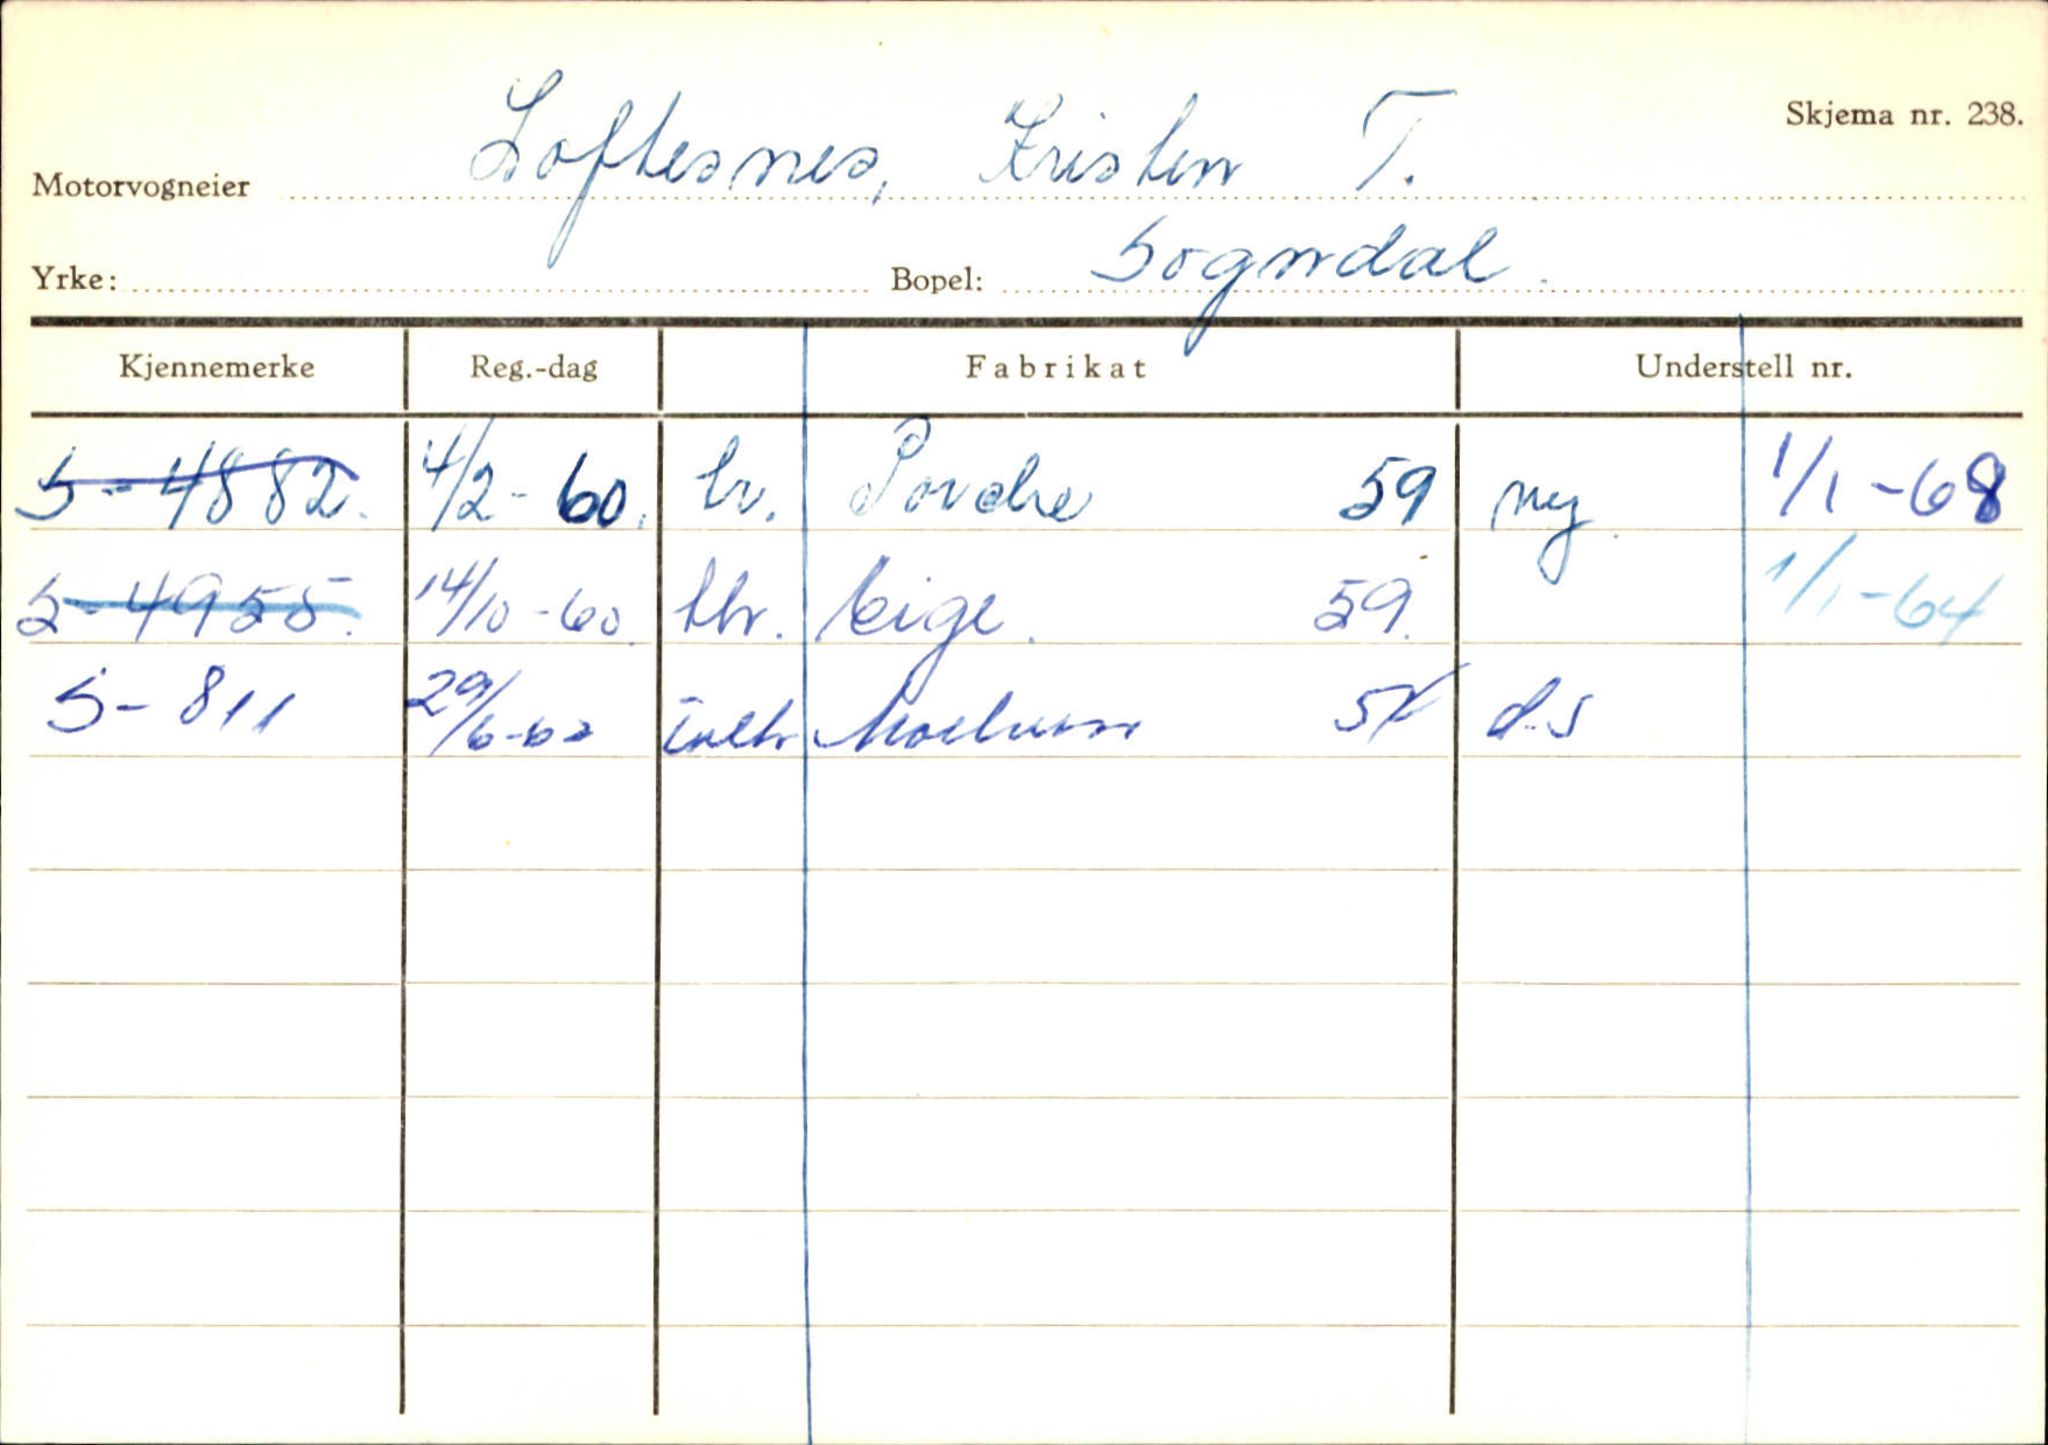 Skjema nr. 238.
Motorvogneier Loftesnes, Kristen T.
Yrke: Bopel: Sogndal.
Kjennemerke Reg.-dag Fabrikat Understell nr.
S-4882. 4/2-60. 59 ny. 1/1-68
S-4955. 14/10-60. thr. Eige. 59. 1/1-64
S-811 29/6-62 d.s